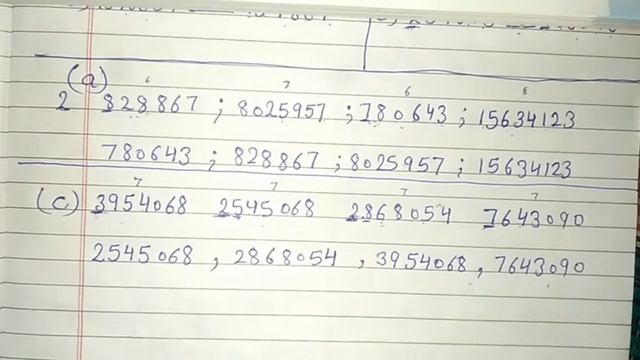 (a)
6 7 6 8
2 828867 ; 8025957 ; 780643 ; 15634123
780643 ; 828867 ; 8025957 ; 15634123
7 7 7 7
(c) 3954068 2545068 2868054 7643090
2545068 , 2868054 , 3954068 , 7643090